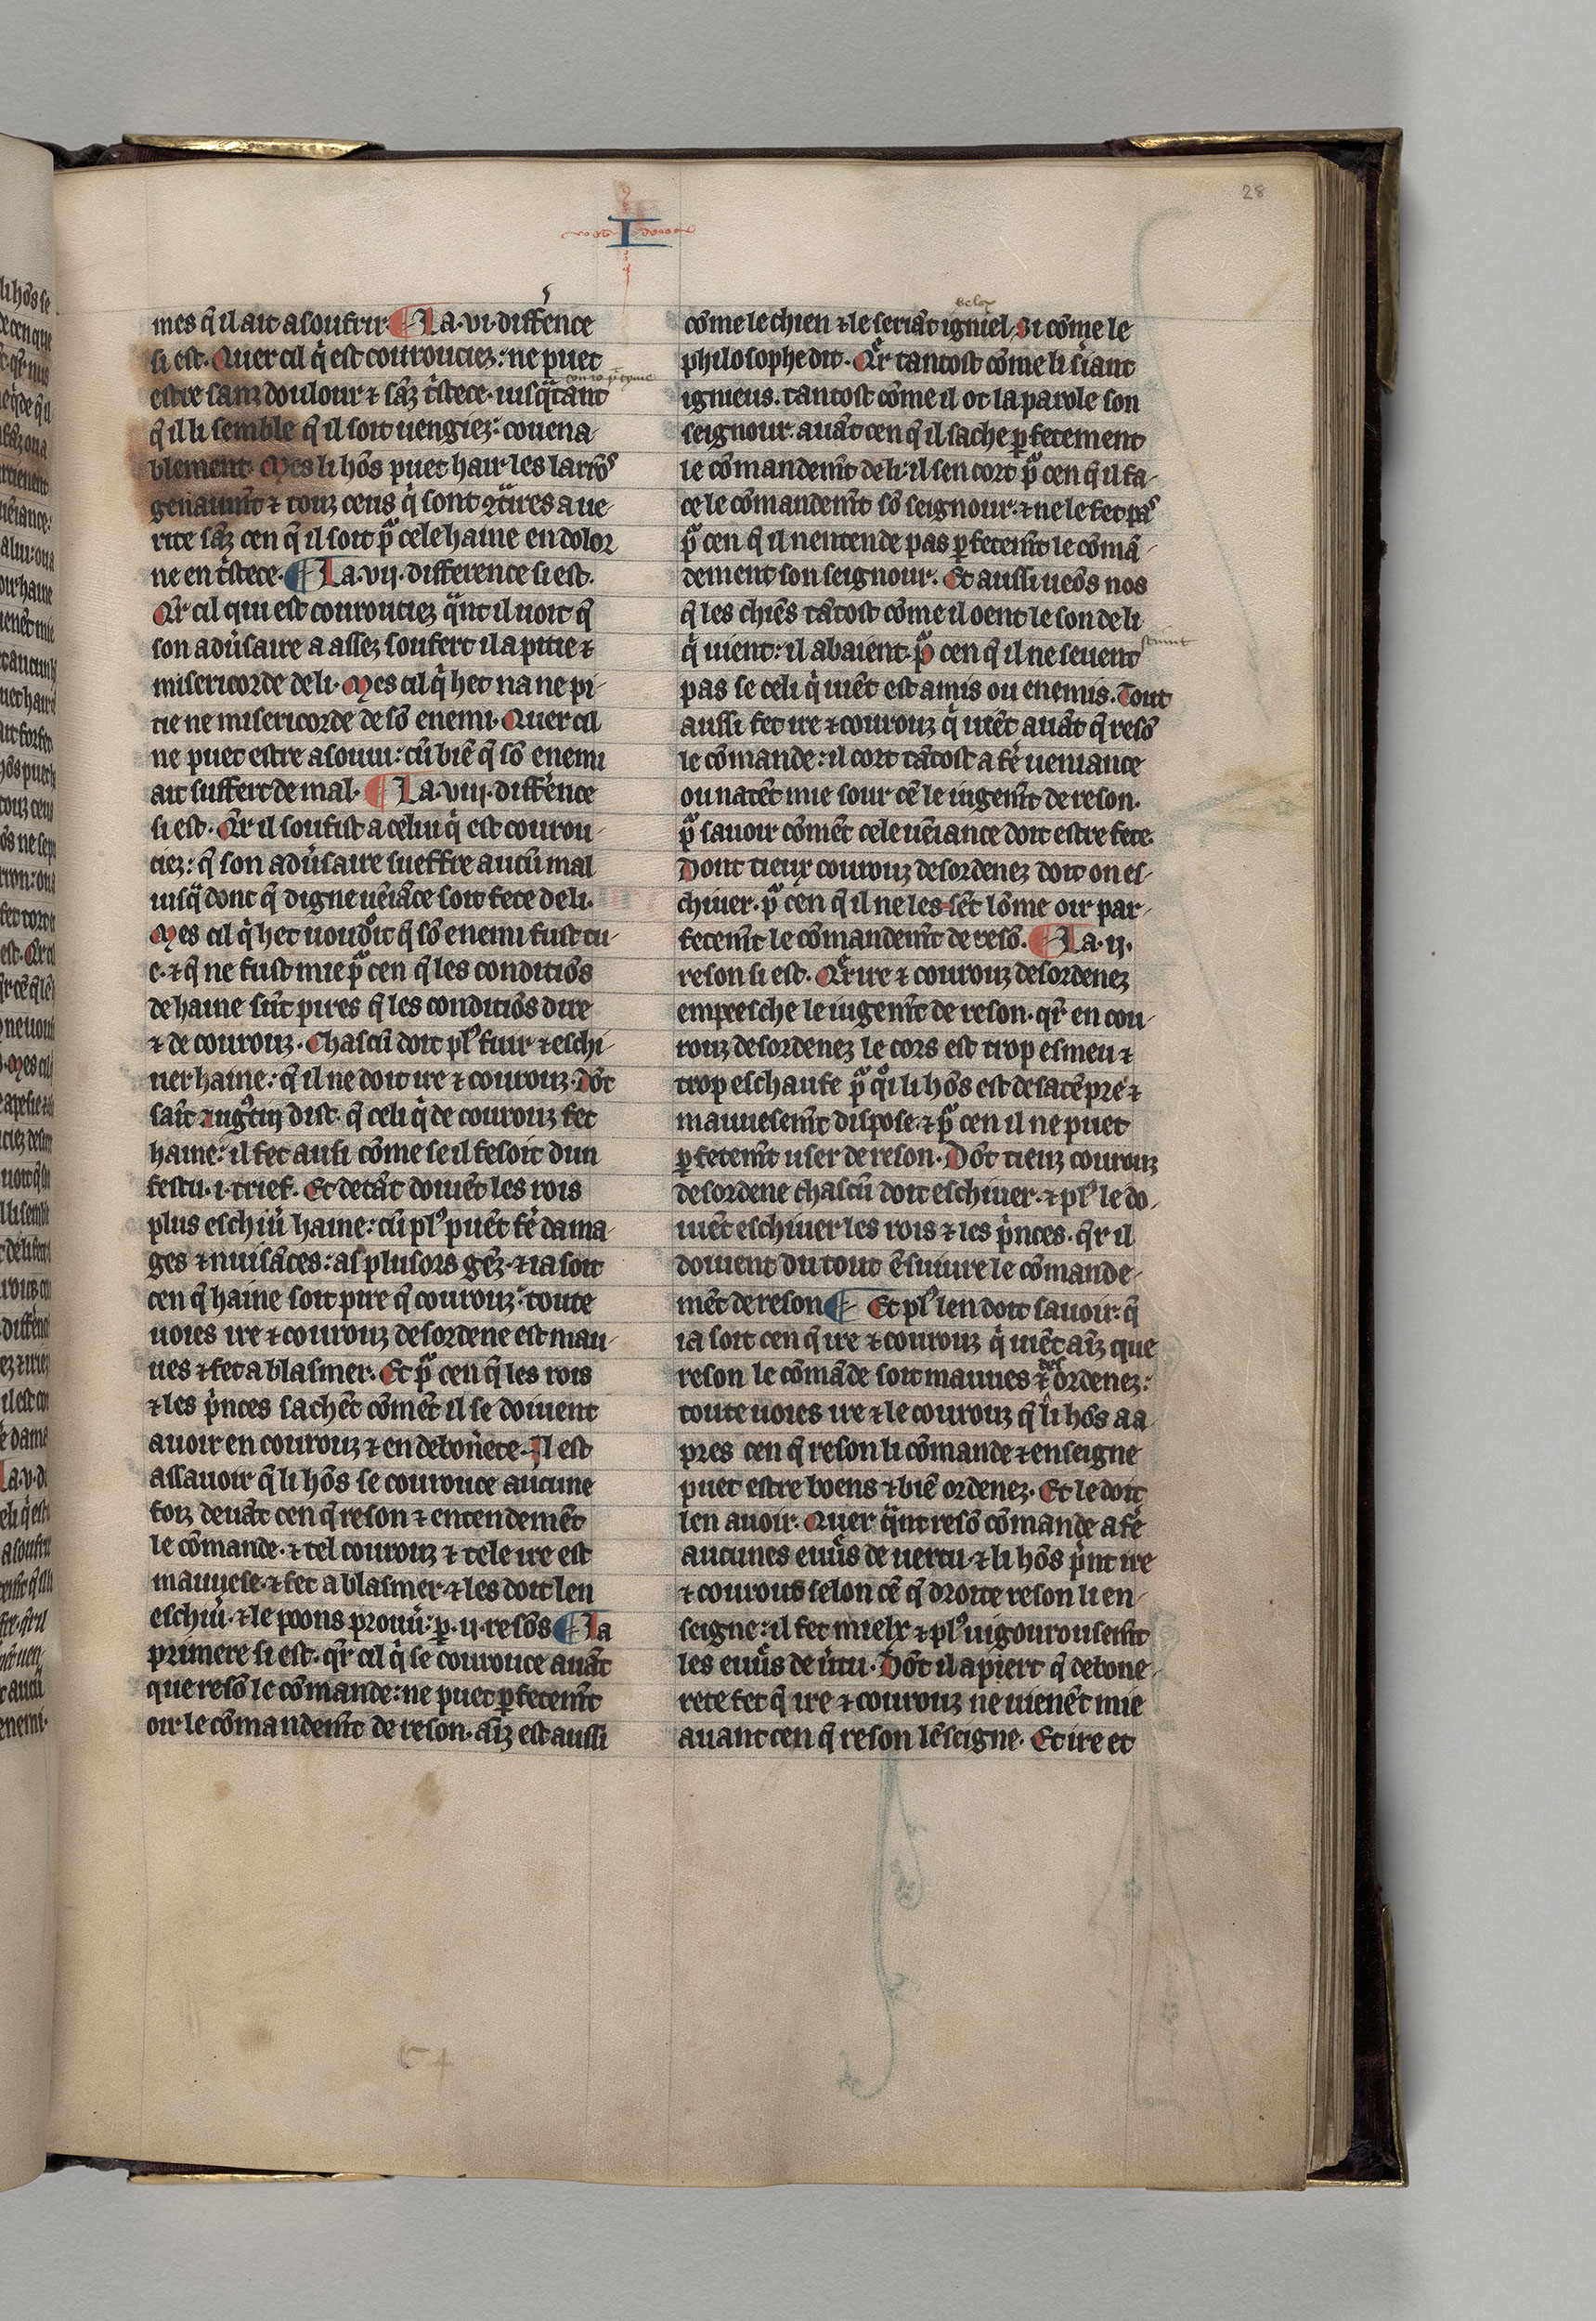 28
I
mes q̃ il ait a soufrir. ¶ La .vi. diff'ence
si est. Quer cil q' est courouciez: ne puet
estre sanz doulour ⁊ sãz t'stece. iusq̃ tant
q̃ il li semble q̃ il soit uengiez: couena-
blement. Mes li hõs puet hair les larrõs
⁊ touz ceus q' sont 9t̃ires a ue-
rite sãz cen q̃ il soit p̃ cele haine en dolor
ne en t'stece. ¶ La .vij. difference si est.
Qr̃ cil qui est courouciez q̃nt il uoit q̃
son adũsaire a assez soufert il a pitie ⁊
misericorde de li. Mes cil q' het na ne pi-
tie ne misericorde de sõ enemi. Quer cil
ne puet estre asouui: cũ biẽ q̃ sõ enemi
ait suffert de mal. ¶ La .viij. diff'ence
si est. Qr̃ il soufist a celui q' est courou-
ciez: q̃ son adũsaire sueffre aucũ mal
iusq̃ dont q̃ digne uẽiãce soit fete de li.
Mes cil q' het uoudõit q̃ sõ enemi fust tu-
e. ⁊ q̃ ne fust mie p̃ cen q̃ les conditiõs
de haine sũt pires q̃ les conditiõs dire
⁊ de courouz. Chascũ doit pl9 fuir ⁊ eschi-
uer haine: q̃ il ne doit ire ⁊ courouz. Dõt
sait̃ augt̃in dist. q̃ celi q' de courouz fet
haine: il fet ausi cõme se il fesoit dun
festu .i. trief. Et detãt doiuẽt les rois
plus eschiũ haine: cũ pl9 puẽt fẽ dama-
ges ⁊ nuisãces: as plusors gẽz. ⁊ ia soit
cen q̃ haine soit pire q̃ courouz: toute
uoies ire ⁊ courouz desordene est mau-
ues ⁊ fet a blasmer. Et p̃ cen q̃ les rois
⁊ les p'nces sachẽt cõmẽt il se doiuent
auoir en courouz ⁊ en debon'ete. Il est
assauoir q̃ li hõs se courouce aucune
foiz deuãt cen q̃ reson ⁊ entendemẽt
le cõmande. ⁊ tel courouz ⁊ tele ire est
mauuese. ⁊ fet a blasmer. ⁊ les doit len
eschiũ. ⁊ le poons prouũ: ꝑ .ij. resõs ¶ La
primere si est. qr̃ cil q' se courouce auãt
que resõ le cõmande: ne puet ꝑfetem̃t
oir le cõmandem̃t de reson. aĩz est aussi
cõme le chien ⁊ le seriãt igniel. Si cõme le
philosophe dit. Qr̃ tantost cõme li s'iant
ignieus. tantost cõme il ot la parole son
seignour. auãt cen q̃ il sache ꝑfetement
le cõmandem̃t de li: il sen cort p̃ cen q̃ il fa-
ce le cõmandem̃t sõ seignour: ⁊ ne le fet pas
p̃ cen q̃ il nentende pas ꝑfetem̃t le cõmã-
dement son seignour. Et aussi ueõs nos
q̃ les chiẽs tãtost cõme il oent le son de li
q' uient: il abaient. p̃ cen q̃ il ne seuent
pas se celi q' uiẽt est amis ou enemis. Tout
aussi fet ire ⁊ courouz q' uiẽt auãt q̃ resõ
le cõmande: il cort tãtost a fẽ ueniance
ou natẽt mie sour cẽ le iugem̃t de reson.
p̃ sauoir cõmẽt cele uẽiance doit estre fete.
Dont tieux courouz desordenez doit on es-
chiuer. p̃ cen q̃ il ne les-sẽt lõme oir par-
fetem̃t le cõmandem̃t de resõ. ¶ La .ij.
reson si est. Qr̃ ire ⁊ courouz desordenez
empeesche le iugem̃t de reson. qr̃ en cou-
rouz desordenez le cors est trop esmeu ⁊
trop eschaufe p̃ q̃i li hõs est desatẽpre ⁊
mauuesem̃t dispose. ⁊ p̃ cen il ne puet
ꝑfetem̃t user de reson. Dõt tieuz courouz
desordene chascũ doit eschiuer. ⁊ pl9 le do-
iuẽt eschiuer les rois ⁊ les p'nces. qr̃ il
doiuent du tout ẽsuiure le cõmande-
mẽt de reson ¶ Et pl9 len doit sauoir: q̃
ia soit cen q̃ ire ⁊ courouz q' uiẽt aĩz que
reson le cõmãde soit mauues ⁊ des ordenez:
toute uoies ire ⁊ le courouz q̃ li hõs a a-
pres cen q̃ reson li cõmande ⁊ enseigne
puet estre boens ⁊ biẽ ordenez. Et le doit
len auoir. Quer q̃nt resõ cõmande a fẽ
aucunes euũs de uertu. ⁊ li hõs p'nt ire
⁊ courous selon cẽ q̃ droite reson li en-
seigne: il fet mielx ⁊ pl9 uigourousem̃t
les euũs de ũtu. Dõt il apiert q̃ debone-
rete fet q̃ ire ⁊ courouz ne uienẽt mie
auant cen q̃ reson lẽseigne. Et ire et